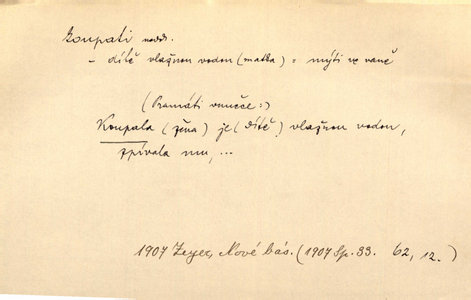 koupati nedok.
– dítě vlažnou vodou (matka) = mýti ve vaně
(Pramáti vnuče:)
Koupala (žena) je (dítě) vlažnou vodou,
zpívala mu, ...
1907 Zeyer, Nové bás. (1907 Sp. 33. 62, 12.)